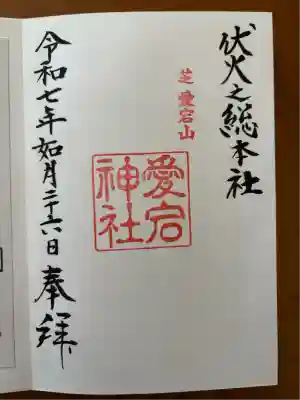 伏火之総本社
芝 愛宕山
愛宕神社
令和七年如月二十六日 奉拝